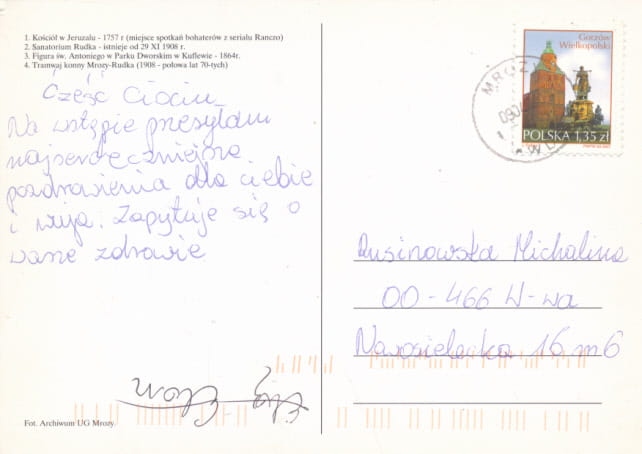 1. Kościół w Jeruzalu - 1757 r (miejsce spotkań bohaterów z serialu Ranczo)
2. Sanatorium Rudka - istnieje od 29 XI 1908 r.
3. Figura św. Antoniego w Parku Dworskim w Kuflewie - 1864r.
4. Tramwaj konny Mrozy-Rudka (1908 - połowa lat 70-tych)
Cześć Ciociu
Na wstępie przesyłam
najserdeczniejsze
pozdrowienia dla ciebie
i wuja. Zapytuje się o
wasze zdrowie
Fot. Archiwum UG Mrozy.
Gorzów
Wielkopolski
POLSKA 1,35 zł
MROZY
Rusinowska Michalina
00-466 W-wa
Nowosielecka 16 m 6